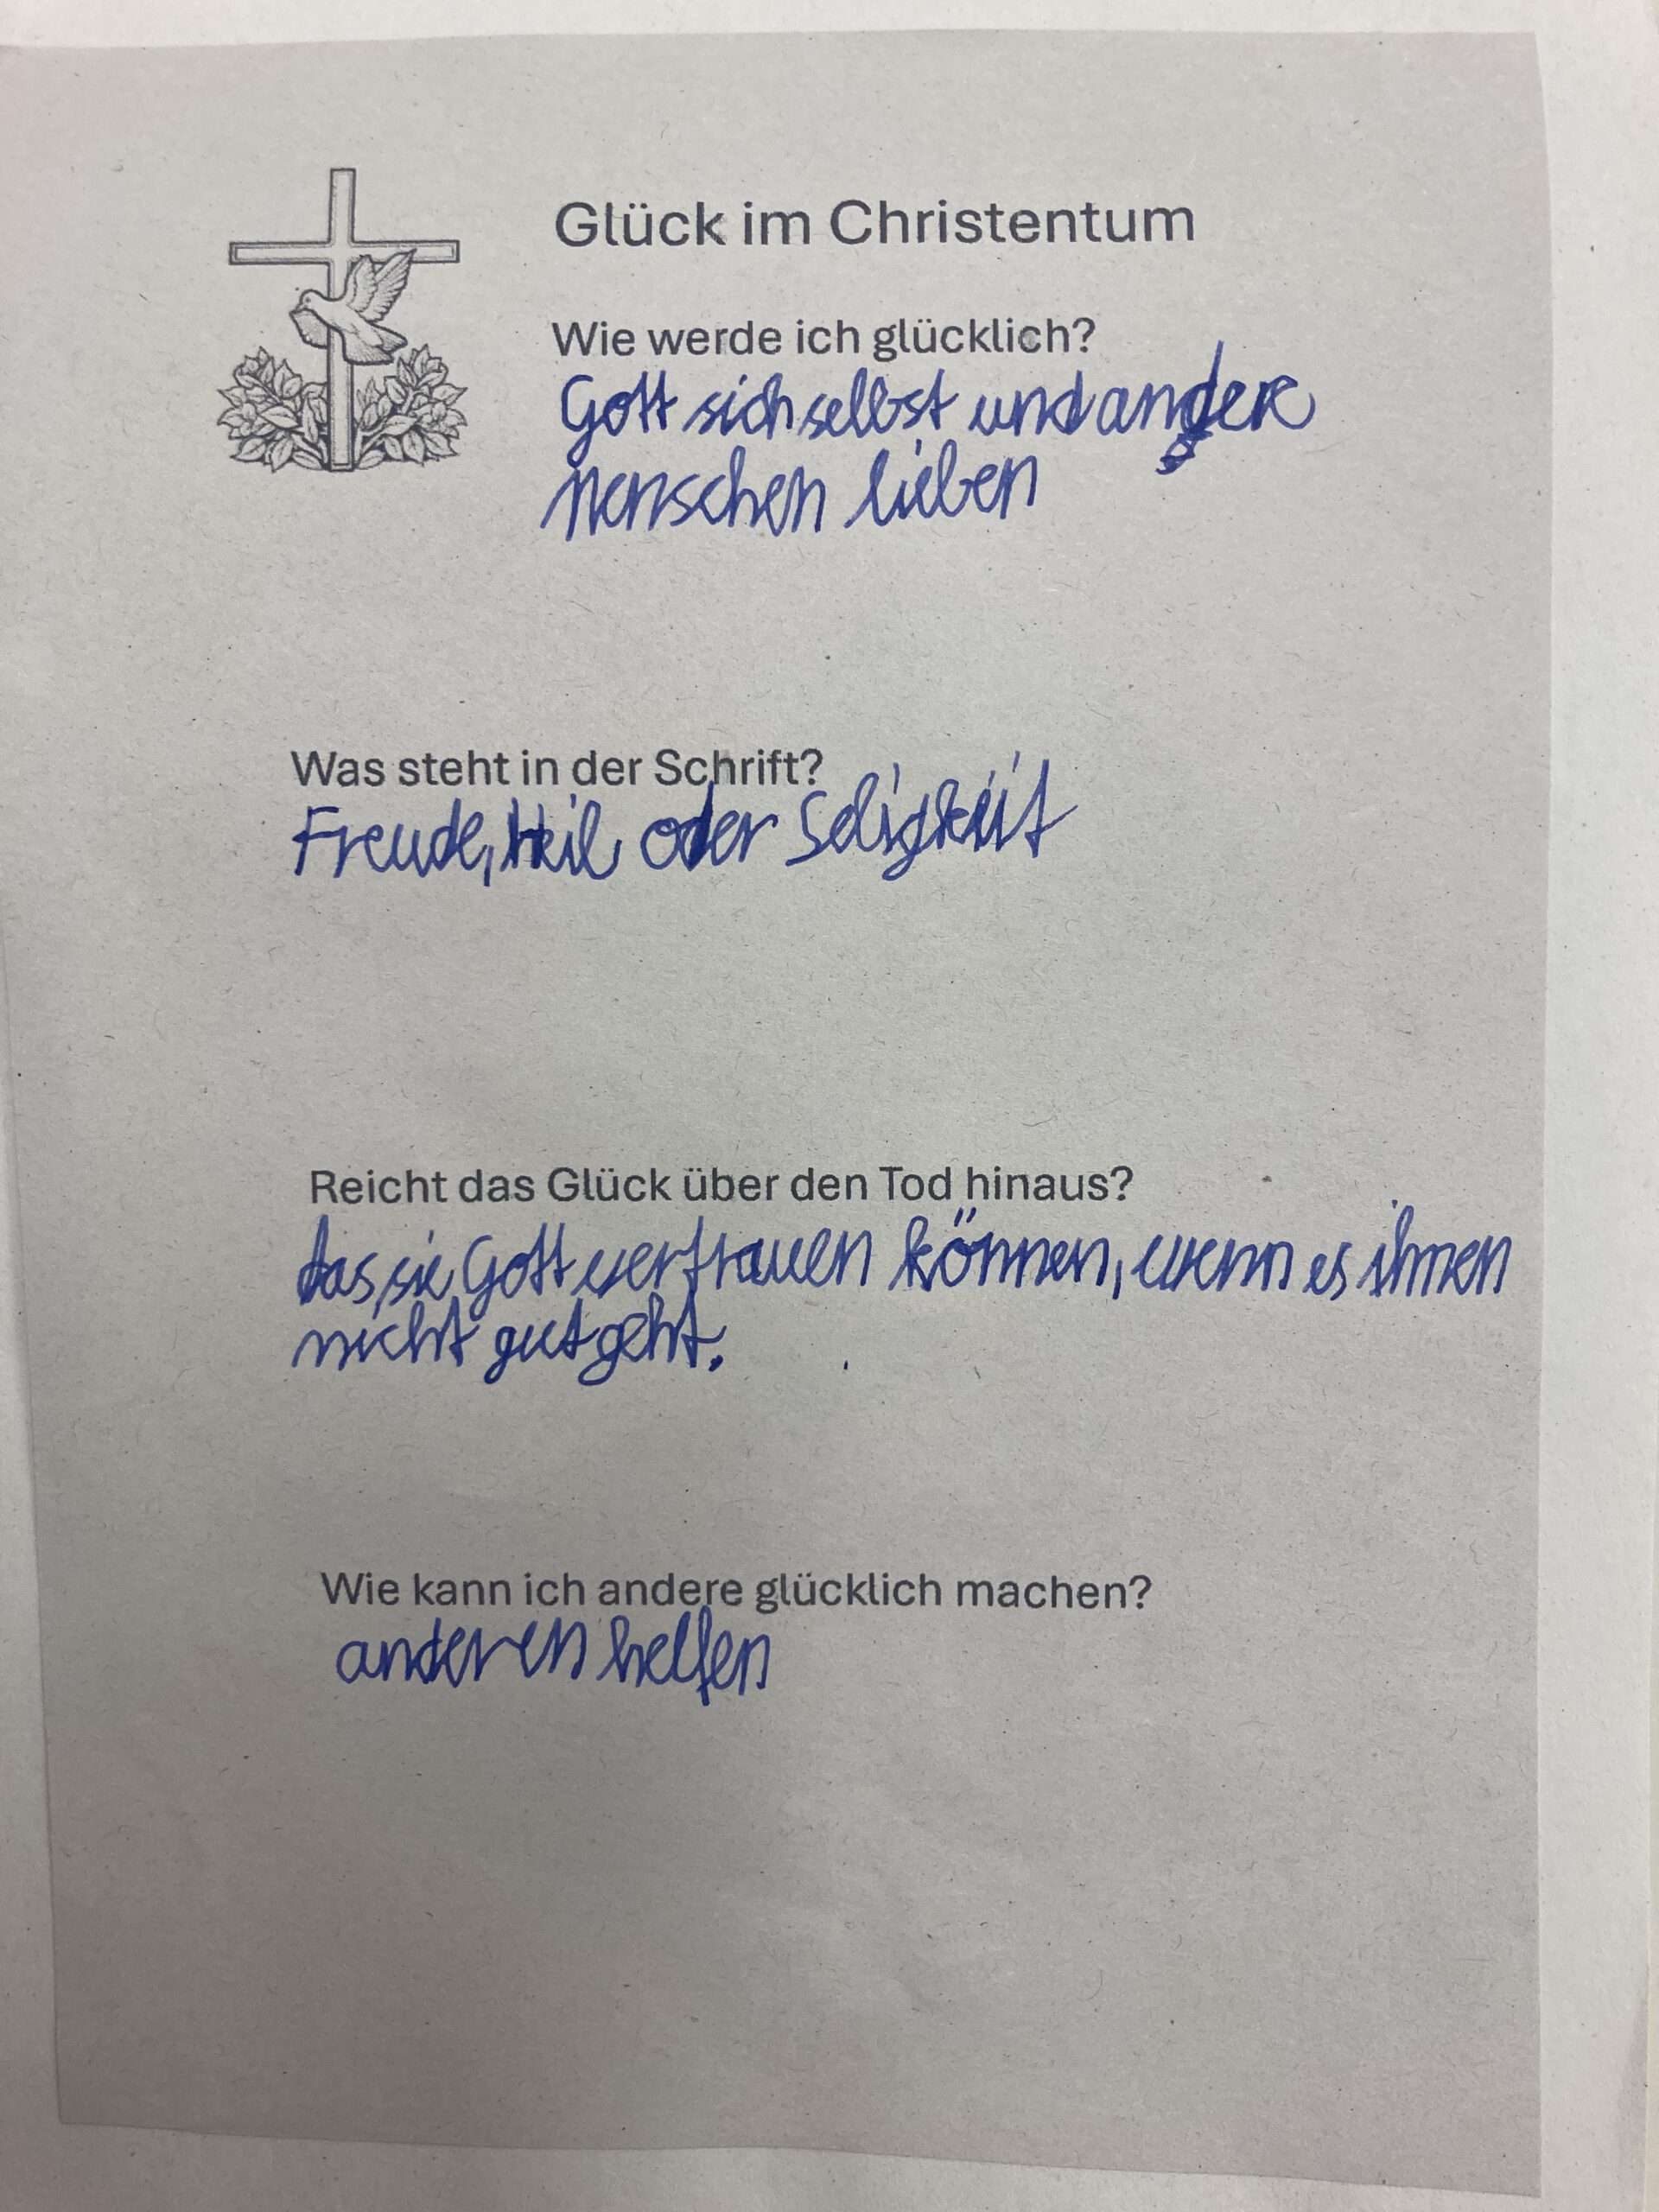 Glück im Christentum
Wie werde ich glücklich?
Gott sich selbst und andere
menschen lieben
Was steht in der Schrift?
Freude, Heil oder Seligkeit
Reicht das Glück über den Tod hinaus?
das, sie Gott vertrauen können, wenn es ihnen
nicht gut geht.
Wie kann ich andere glücklich machen?
anderen helfen